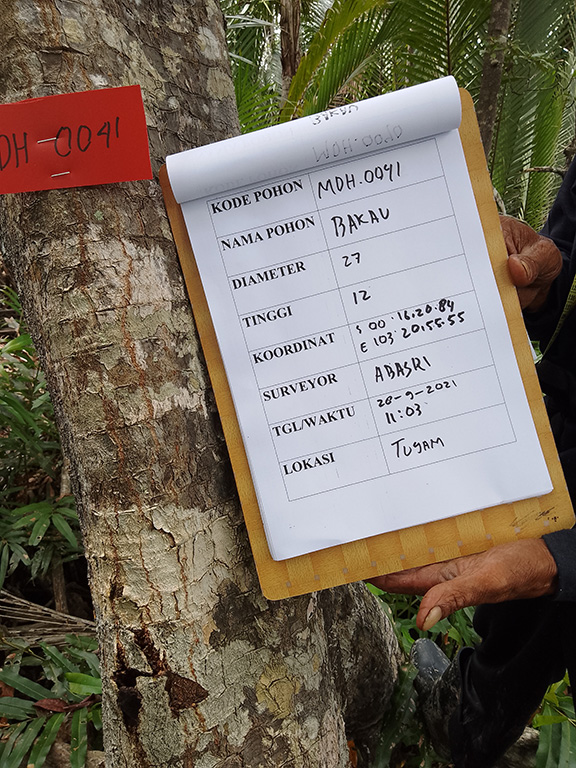 DH-0041
KODE POHON MDH.0041
NAMA POHON BAKAU
DIAMETER 27
TINGGI 12
KOORDINAT S 00:16.20.84
E 103:20:55.55
SURVEYOR ADASRI
TGL/WAKTU 20-9-2021
11:03
LOKASI TUGAM